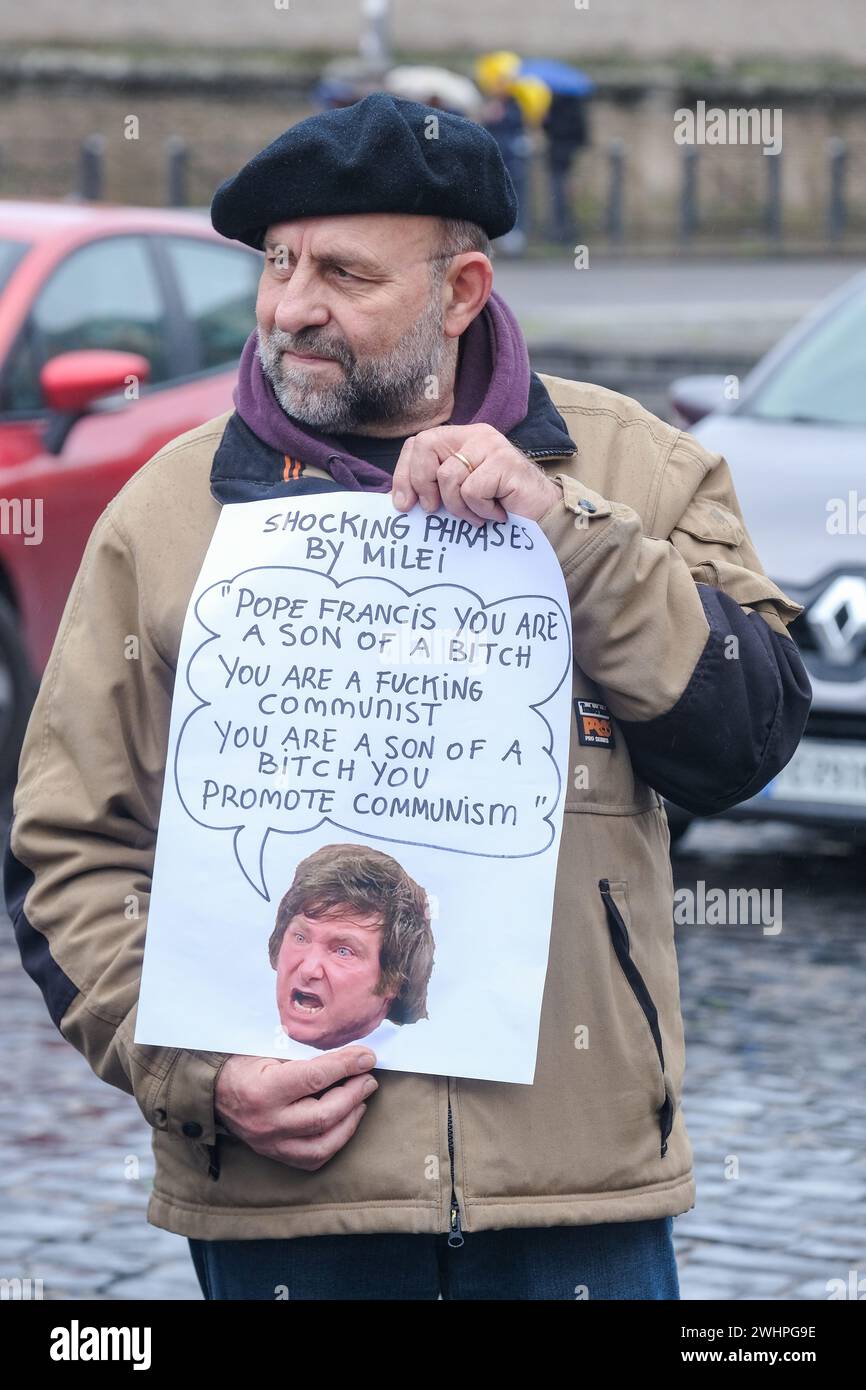 SHOCKING PHRASES
BY MILEI
"POPE FRANCIS YOU ARE
A SON OF A BITCH
YOU ARE A FUCKING
COMMUNIST
YOU ARE A SON OF A
BITCH YOU
PROMOTE COMMUNISM"
PRO
PRO SERIES
a
alamy
Image ID: 2WHPG9E
www.alamy.com